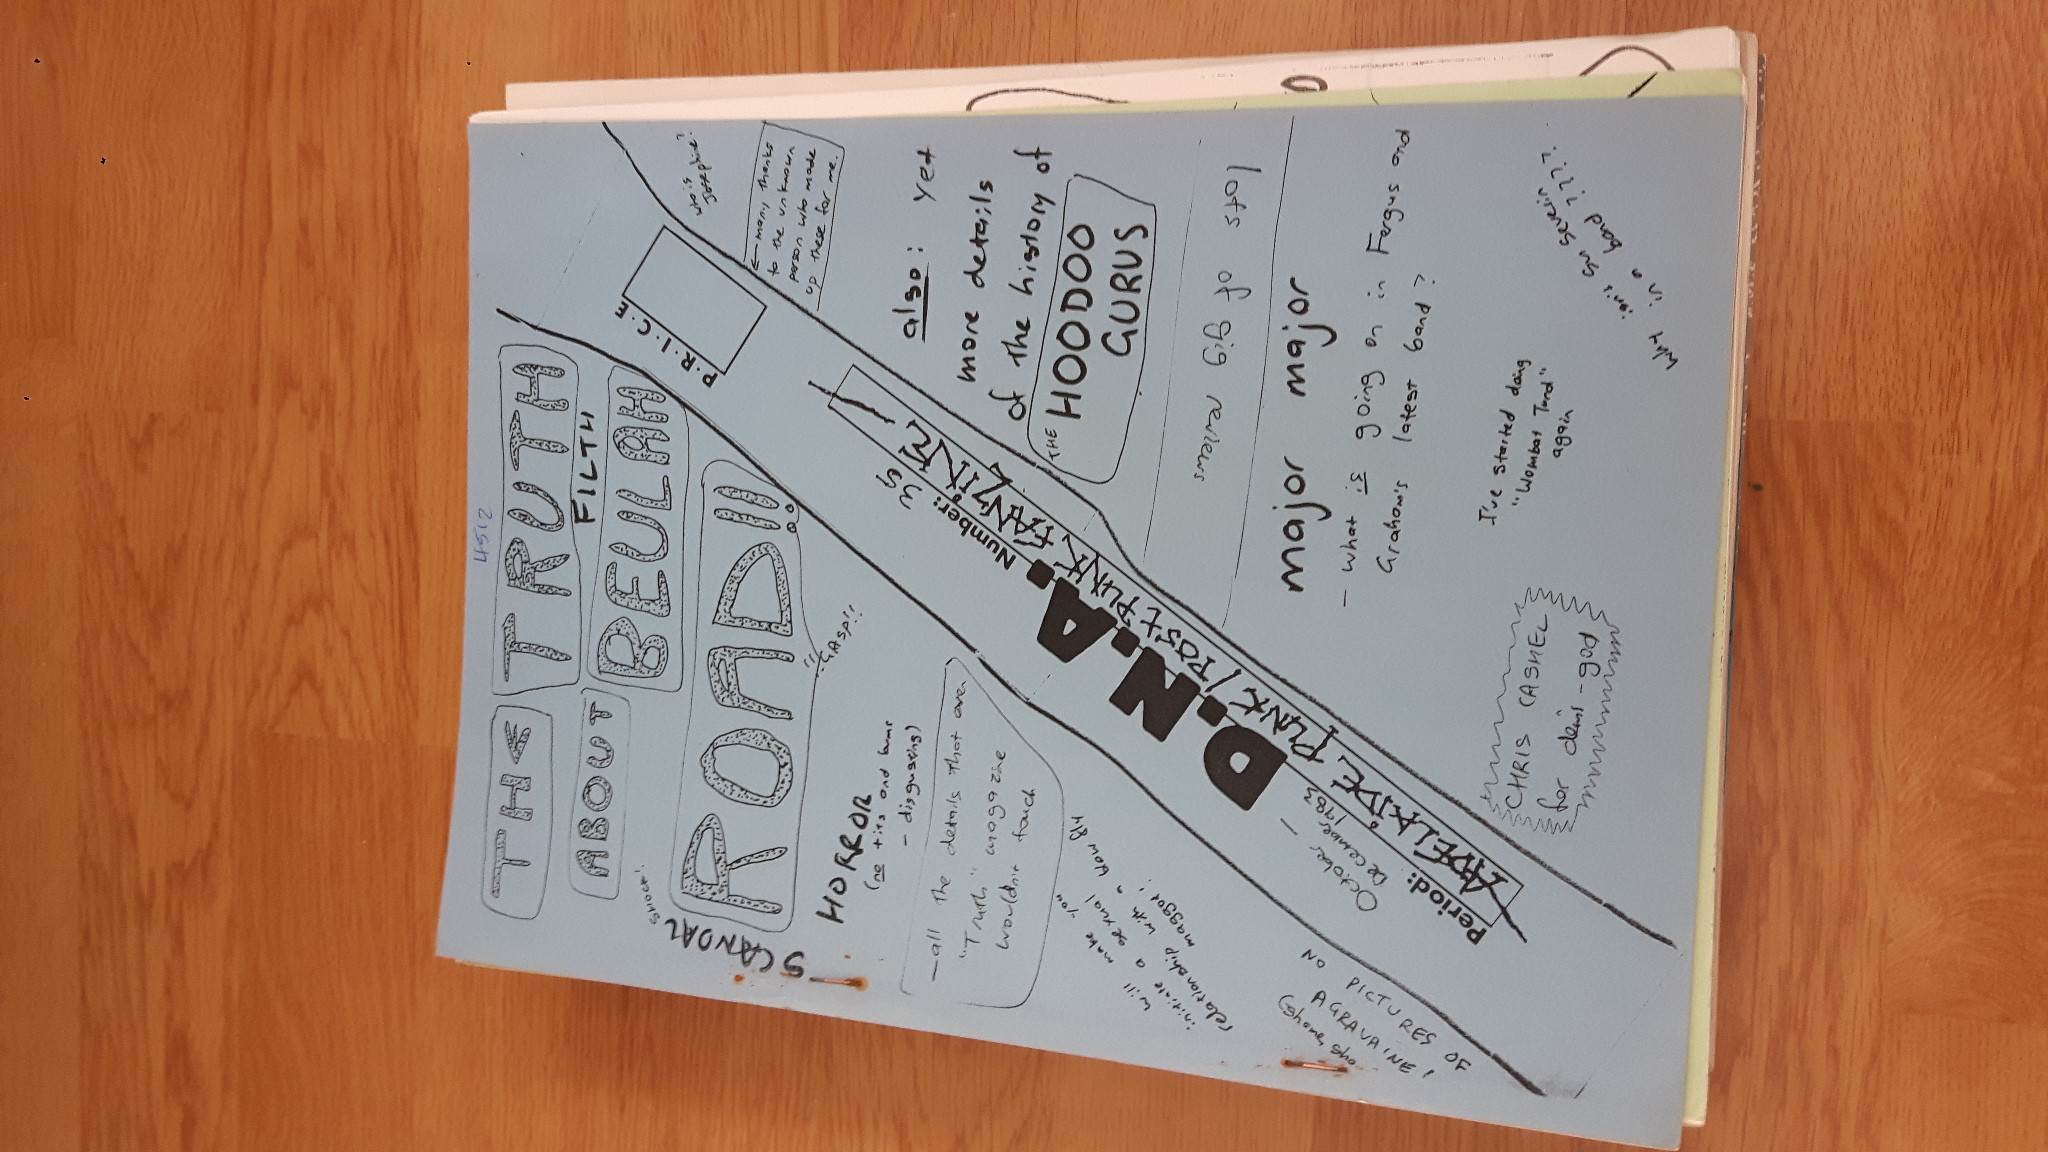 4512
THE TRUTH
FILTH
ABOUT BEULAH
SHOCK!
ROAD!!
SCANDAL
"GASP!!
HORROR
(no tits and bums
- disgusting)
- all the details that even
"Truth" magazine
wouldn't touch
will make you
initiate a sexual
relationship with a blow fly
maggot!
NO PICTURES OF
AGRAVAINE!
(shame, sha
P.R.I.C.E
who is
Josephine?
← many thanks
to the unknown
person who made
up these for me.
Number: 35
D.N.A.
ADELAIDE PUNK/POST PUNK FANZINE
Period: October -
December 1983
also: yet
more details
of the history of
THE HOODOO
GURUS
lots of gig reviews
major major major
- what is going on in Fergus and
Graham's latest band?
CHRIS CASHEL
for demi-god
I've started doing
"Wombat Turd"
again
Why isn't Su Severin
in a band ?????